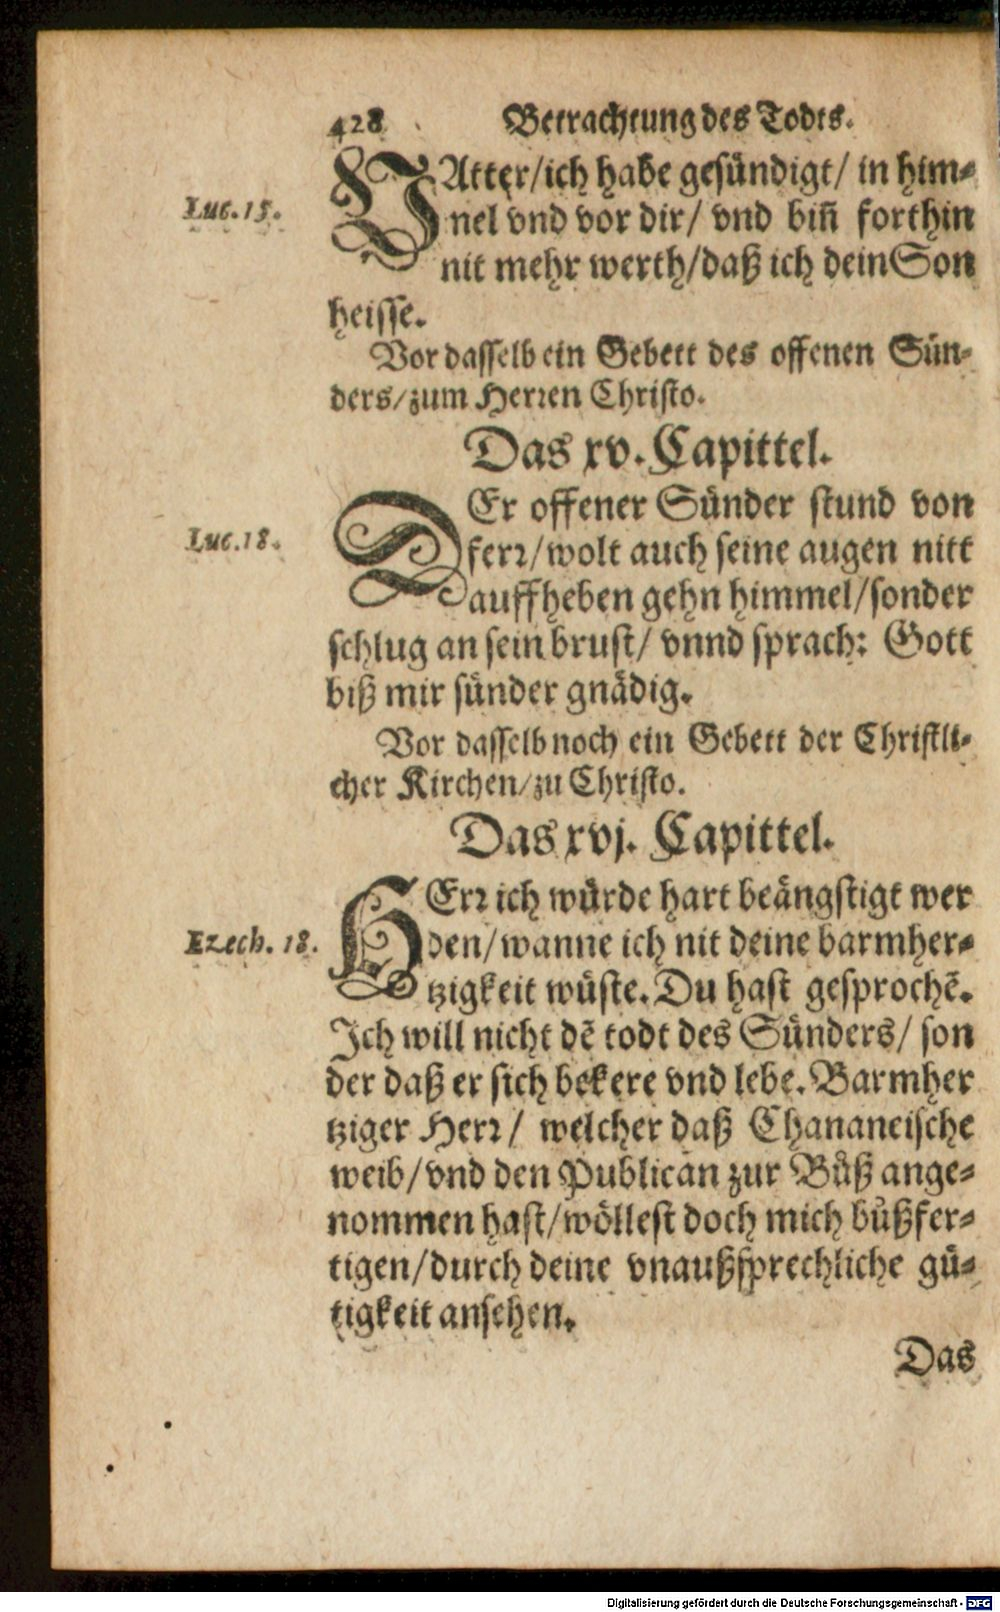 428 Betrachtung des Todts.
VAtter/ich habe gesündigt/ in him-
Luc. 15.
nel vnd vor dir/ vnd biñ forthin
nit mehr werth/daß ich dein Son
heisse.
Vor dasselb ein Gebett des offenen Sün-
ders/zum Herren Christo.
Das xv. Capittel.
DEr offener Sünder stund von
Luc.18.
ferr/wolt auch seine augen nitt
auffheben gehn himmel/sonder
schlug an sein brust/ vnnd sprach: Gott
biß mir sünder gnädig.
Vor dasselb noch ein Gebett der Christli-
cher Kirchen/zu Christo.
Das xvj. Capittel.
HErr ich würde hart beängstigt wer
Ezech. 18.
den/wanne ich nit deine barmher-
tzigkeit wüste. Du hast gesprochẽ.
Ich will nicht dẽ todt des Sünders/ son
der daß er sich bekere vnd lebe. Barmher
tziger Herr/ welcher daß Chananeische
weib/vnd den Publican zur Bůß ange-
nommen hast/wöllest doch mich bůßfer-
tigen/durch deine vnaußsprechliche gü-
tigkeit ansehen.
Das
Digitalisierung gefördert durch die Deutsche Forschungsgemeinschaft - DFG